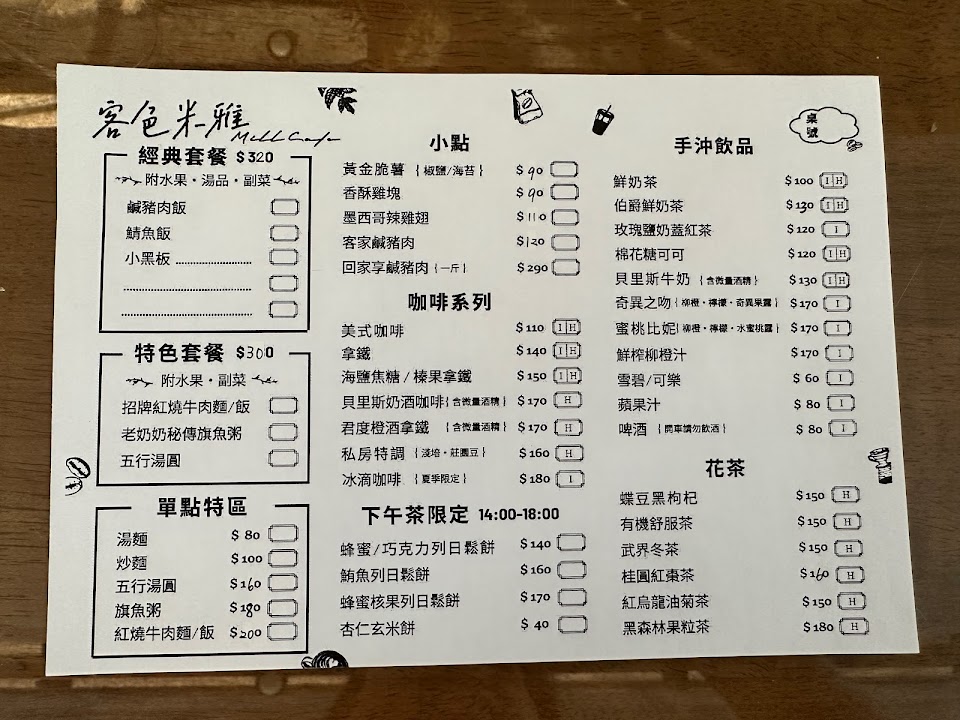 客色米雅
Mill Cafe
經典套餐 $320
附水果・湯品・副菜
鹹豬肉飯
鯖魚飯
小黑板
特色套餐 $300
附水果・副菜
招牌紅燒牛肉麵/飯
老奶奶秘傳旗魚粥
五行湯圓
單點特區
湯麵 $80
炒麵 $100
五行湯圓 $160
旗魚粥 $180
紅燒牛肉麵/飯 $200
小點
黃金脆薯 {椒鹽/海苔} $90
香酥雞塊 $90
墨西哥辣雞翅 $110
客家鹹豬肉 $120
回家享鹹豬肉 {一斤} $290
咖啡系列
美式咖啡 $110 I H
拿鐵 $140 I H
海鹽焦糖/榛果拿鐵 $150 I H
貝里斯奶酒咖啡{含微量酒精} $170 H
君度橙酒拿鐵 {含微量酒精} $170 H
私房特調 {淺焙・莊園豆} $160 H
冰滴咖啡 {夏季限定} $180 I
下午茶限定 14:00-18:00
蜂蜜/巧克力列日鬆餅 $140
鮪魚列日鬆餅 $160
蜂蜜核果列日鬆餅 $170
杏仁玄米餅 $40
桌號
手沖飲品
鮮奶茶 $100 I H
伯爵鮮奶茶 $130 I H
玫瑰鹽奶蓋紅茶 $120 I
棉花糖可可 $120 I H
貝里斯牛奶 {含微量酒精} $130 I H
奇異之吻{柳橙・檸檬・奇異果露} $170 I
蜜桃比妮{柳橙・檸檬・水蜜桃露} $170 I
鮮榨柳橙汁 $170 I
雪碧/可樂 $60 I
蘋果汁 $80 I
啤酒 {開車請勿飲酒} $80 I
花茶
蝶豆黑枸杞 $150 H
有機舒服茶 $150 H
武界冬茶 $150 H
桂圓紅棗茶 $160 H
紅烏龍油菊茶 $150 H
黑森林果粒茶 $180 H